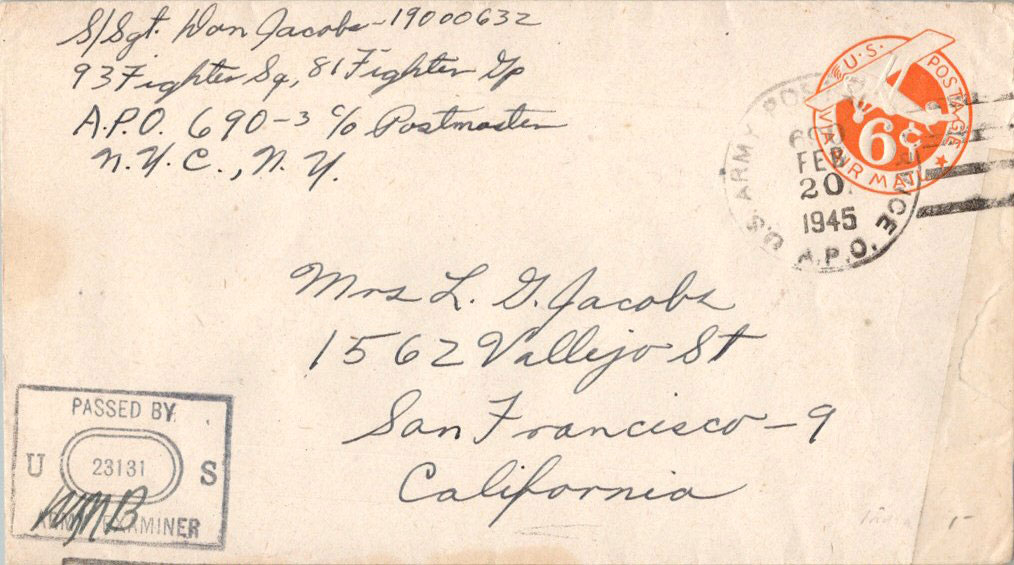 S/Sgt. Don Jacobs-19000632
93 Fighter Sq, 81 Fighter Gp
A.P.O. 690-3 c/o Postmaster
N.Y.C., N.Y.
U.S. POSTAGE
VIA AIR MAIL
6¢
U.S. ARMY POSTAL SERVICE
FEB
20
1945
A.P.O.
Mrs L. G. Jacobs
1562 Vallejo St
San Francisco-9
California
PASSED BY
U 23131 S
WMB
ARMY EXAMINER
India 1-